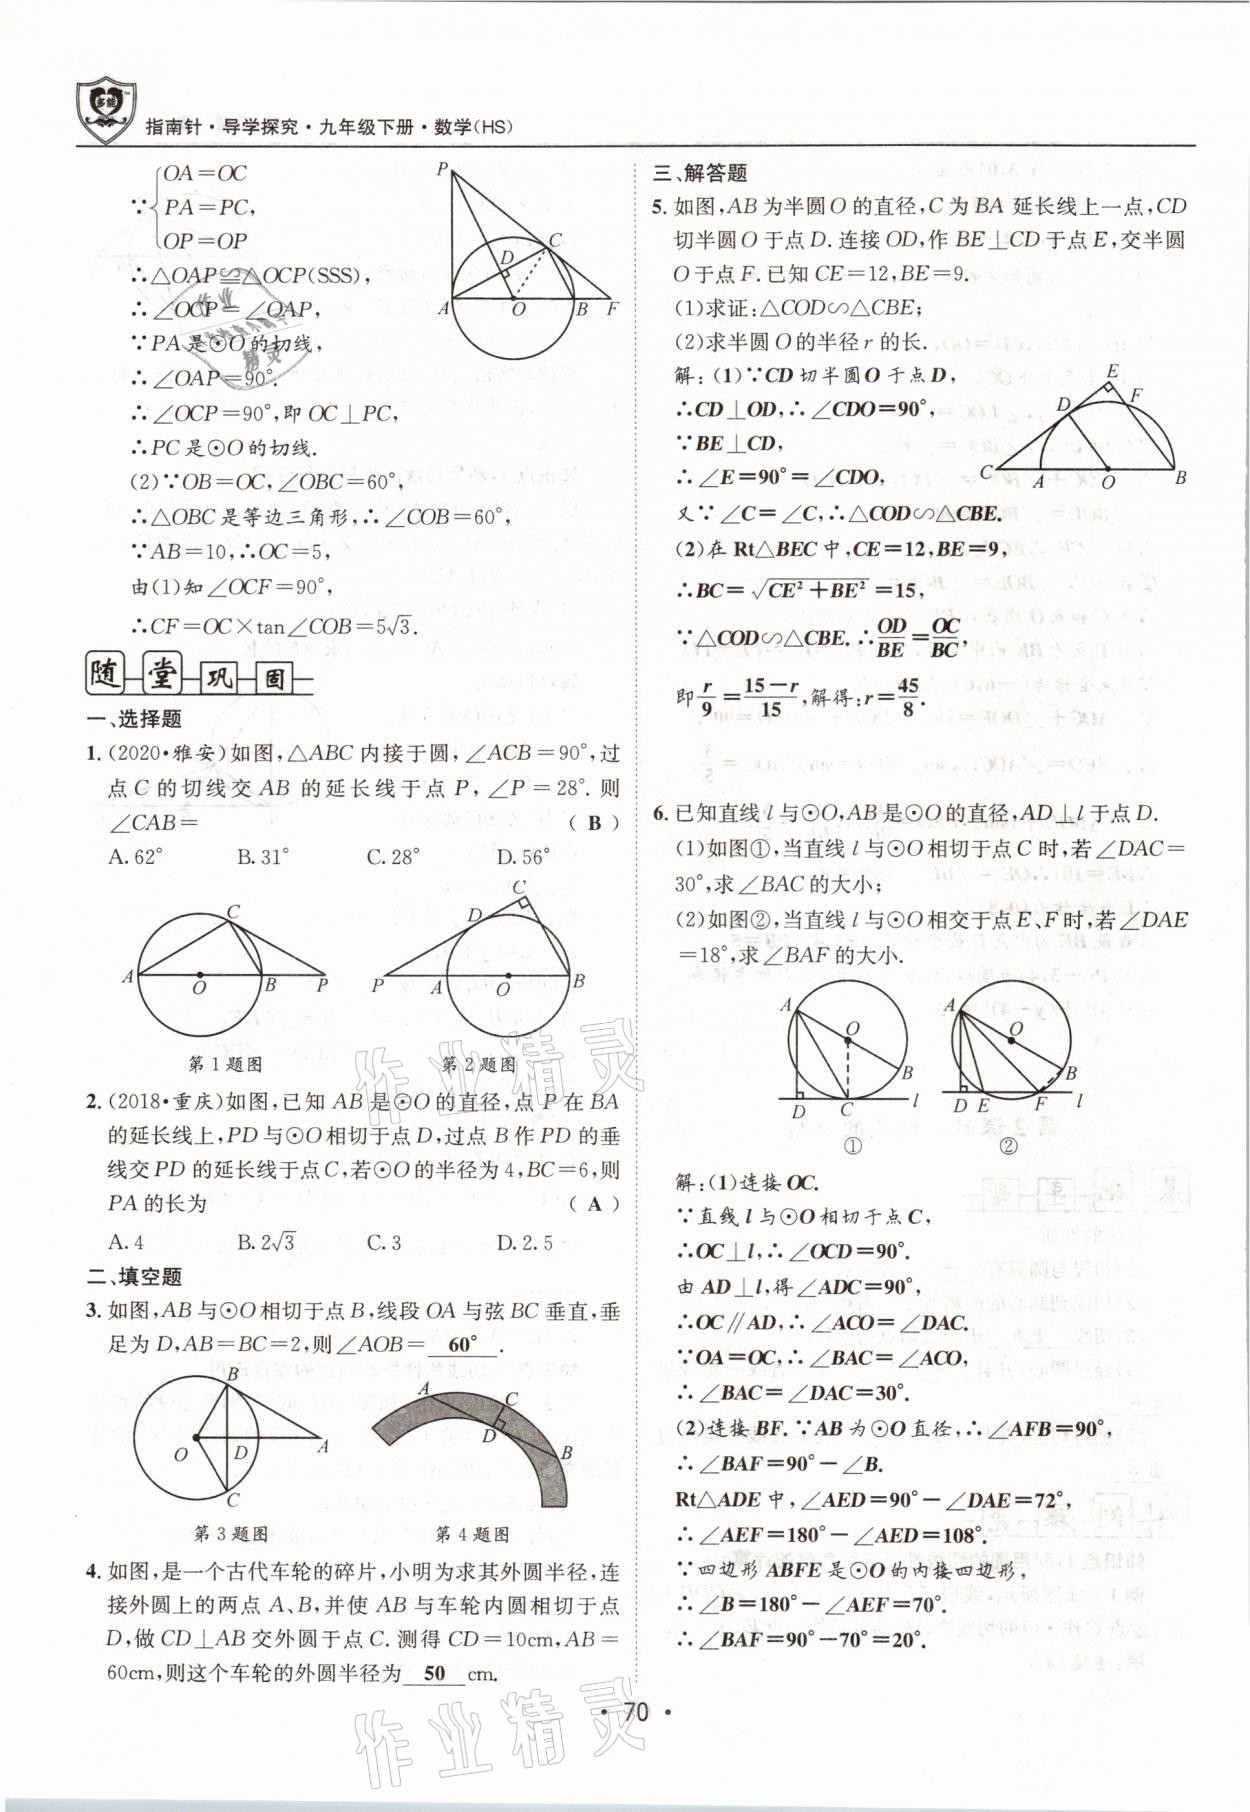 多能
指南针·导学探究·九年级下册·数学(HS)
∵{OA=OC
PA=PC,
OP=OP
∴△OAP≌△OCP(SSS),
∴∠OCP=∠OAP,
∵PA是⊙O的切线,
∴∠OAP=90°.
∴∠OCP=90°,即OC⊥PC,
∴PC是⊙O的切线.
(2)∵OB=OC,∠OBC=60°,
∴△OBC是等边三角形,∴∠COB=60°,
∵AB=10,∴OC=5,
由(1)知∠OCF=90°,
∴CF=OC×tan∠COB=5√3.
P
D
C
A
O
B
F
随堂巩固
一、选择题
1.(2020·雅安)如图,△ABC内接于圆,∠ACB=90°,过
点C的切线交AB的延长线于点P,∠P=28°.则
∠CAB= ( B )
A.62° B.31° C.28° D.56°
C
A
O
B
P
第1题图
C
D
P
A
O
B
第2题图
2.(2018·重庆)如图,已知AB是⊙O的直径,点P在BA
的延长线上,PD与⊙O相切于点D,过点B作PD的垂
线交PD的延长线于点C,若⊙O的半径为4,BC=6,则
PA的长为 ( A )
A.4 B.2√3 C.3 D.2.5
二、填空题
3.如图,AB与⊙O相切于点B,线段OA与弦BC垂直,垂
足为D,AB=BC=2,则∠AOB= 60° .
B
O
D
A
C
第3题图
A
C
D
B
第4题图
4.如图,是一个古代车轮的碎片,小明为求其外圆半径,连
接外圆上的两点A、B,并使AB与车轮内圆相切于点
D,做CD⊥AB交外圆于点C.测得CD=10cm,AB=
60cm,则这个车轮的外圆半径为 50 cm.
三、解答题
5.如图,AB为半圆O的直径,C为BA延长线上一点,CD
切半圆O于点D.连接OD,作BE⊥CD于点E,交半圆
O于点F.已知CE=12,BE=9.
(1)求证:△COD∽△CBE;
(2)求半圆O的半径r的长.
解:(1)∵CD切半圆O于点D,
∴CD⊥OD,∴∠CDO=90°,
∵BE⊥CD,
∴∠E=90°=∠CDO,
又∵∠C=∠C,∴△COD∽△CBE.
(2)在Rt△BEC中,CE=12,BE=9,
∴BC=√(CE²+BE²)=15,
∵△COD∽△CBE.∴OD/BE=OC/BC,
即r/9=(15-r)/15,解得:r=45/8.
E
D
F
C
A
O
B
6.已知直线l与⊙O,AB是⊙O的直径,AD⊥l于点D.
(1)如图①,当直线l与⊙O相切于点C时,若∠DAC=
30°,求∠BAC的大小;
(2)如图②,当直线l与⊙O相交于点E、F时,若∠DAE
=18°,求∠BAF的大小.
A
O
B
D
C
l
①
A
O
B
D E
F
l
②
解:(1)连接OC.
∵直线l与⊙O相切于点C,
∴OC⊥l,∴∠OCD=90°.
由AD⊥l,得∠ADC=90°,
∴OC∥AD,∴∠ACO=∠DAC.
∵OA=OC,∴∠BAC=∠ACO,
∴∠BAC=∠DAC=30°.
(2)连接BF.∵AB为⊙O直径,∴∠AFB=90°,
∴∠BAF=90°-∠B.
Rt△ADE中,∠AED=90°-∠DAE=72°,
∴∠AEF=180°-∠AED=108°.
∵四边形ABFE是⊙O的内接四边形,
∴∠B=180°-∠AEF=70°.
∴∠BAF=90°-70°=20°.
·70·
作业精灵
作业精灵
作业
精灵